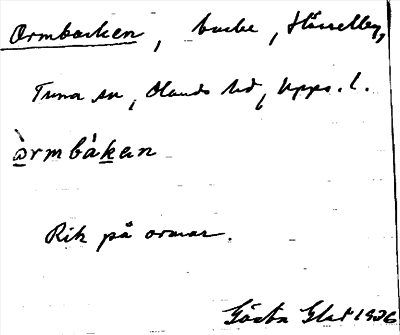 Ormbacken, backe, Hässelby,
Tuna sn, Olands hd, Upps. l.
òrmbàkan
Rik på ormar.
Gösta 1936